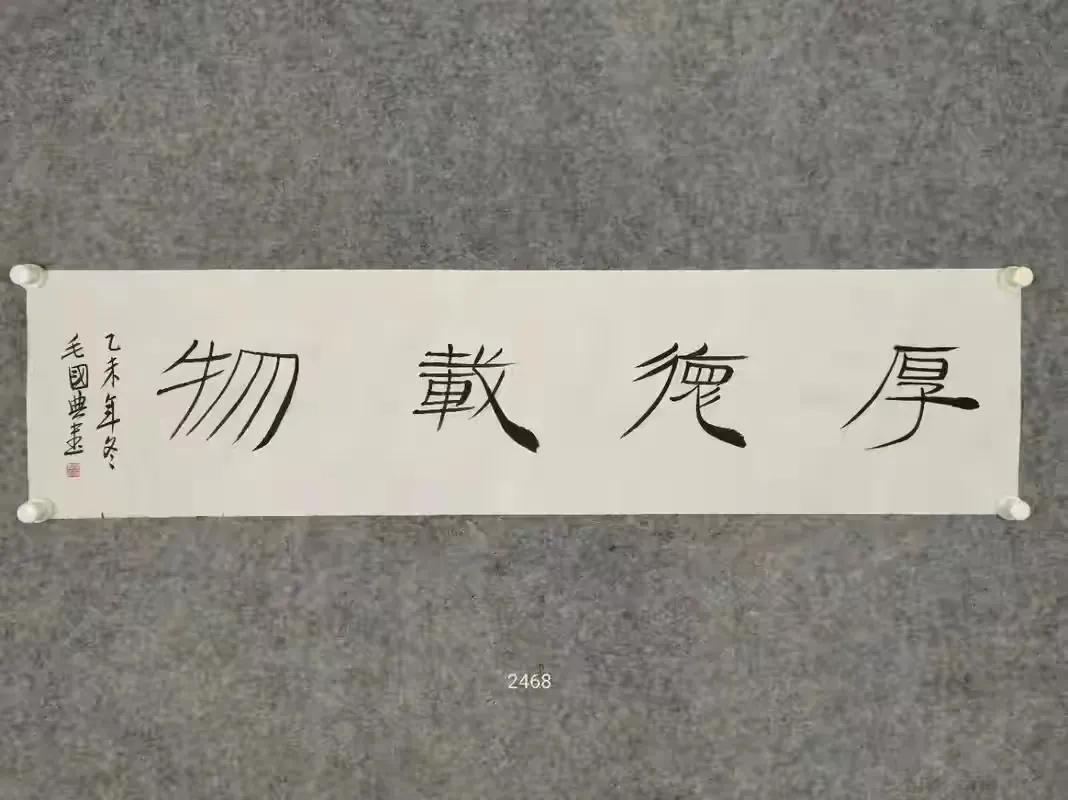 厚德載物
乙未年冬
毛國典書
2468